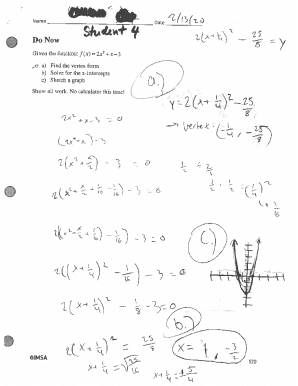 Name
Date 2/13/20
2(x+¼)² - 25/8 = y
Student 4
Do Now
Given the function: f(x) = 2x² + x - 3
a) Find the vertex form
b) Solve for the x-intercepts
c) Sketch a graph
Show all work. No calculator this time!
a.)
y = 2(x + 1/4)² - 25/8
→ vertex: (-1/4, -25/8)
2x² + x - 3 = 0
(2x² + x) - 3
2(x² + x/2) - 3 = 0
1/2 ÷ 2/1
1/2 · 1/2 = (1/4)²
2(x² + x/2 + 1/16 - 1/16) - 3 = 0
2(x² + x/2 + 1/16) - 1/16) - 3 = 0
c.)
2((x + 1/4)² - 1/16) - 3 = 0
2(x + 1/4)² - 1/8 - 3 = 0
b.)
2(x + 1/4)² = 25/8
x = 1, -3/2
x + 1/4 = √25/16
x + 1/4 = ±5/4